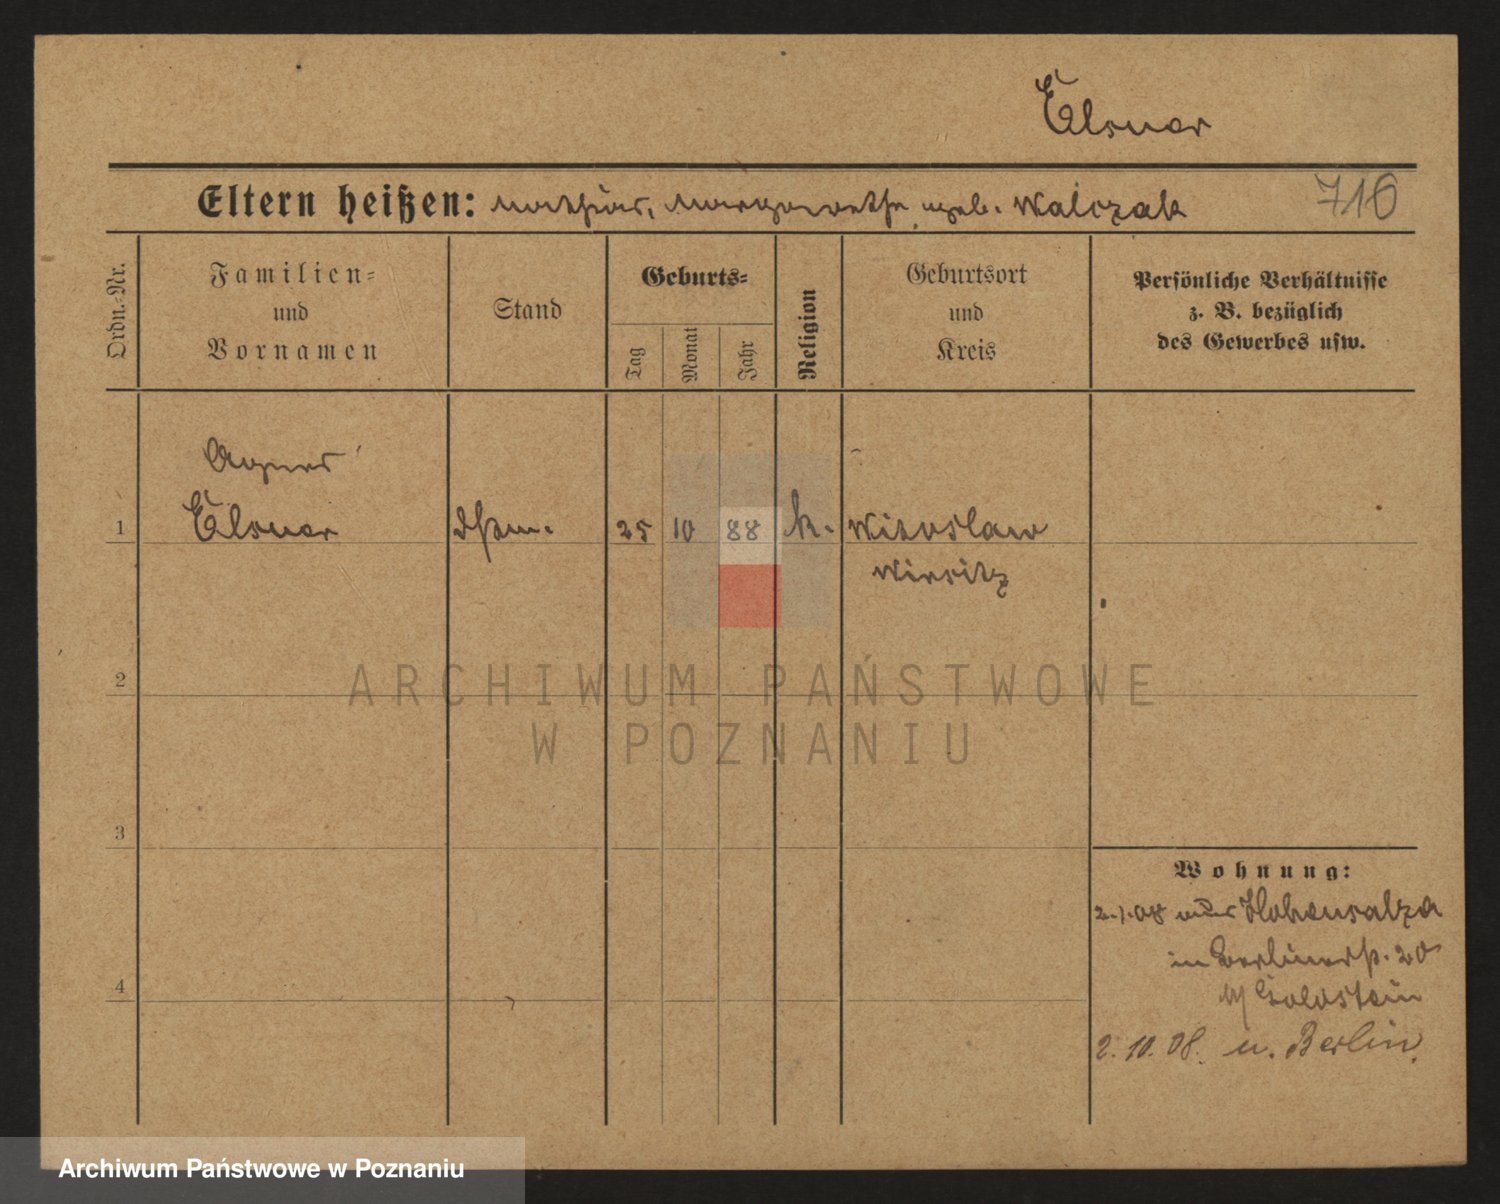 Elsner
Eltern heißen: Mathias, Margarethe geb. Walczak 716
Ordn.-Nr.
Familien-
und
Vornamen
Stand
Geburts-
Tag
Monat
Jahr
Religion
Geburtsort
und
Kreis
Persönliche Verhältnisse
z. B. bezüglich
des Gewerbes usw.
Agnes
1 Elsner 25 10 88 k. Witoslaw
Wirsitz
2
ARCHIWUM PAŃSTWOWE
W POZNANIU
3
Wohnung:
08 Hohensalza
in Berlinerst. 20
b/ Goldstein
4
2.10.08. n. Berlin.
Archiwum Państwowe w Poznaniu